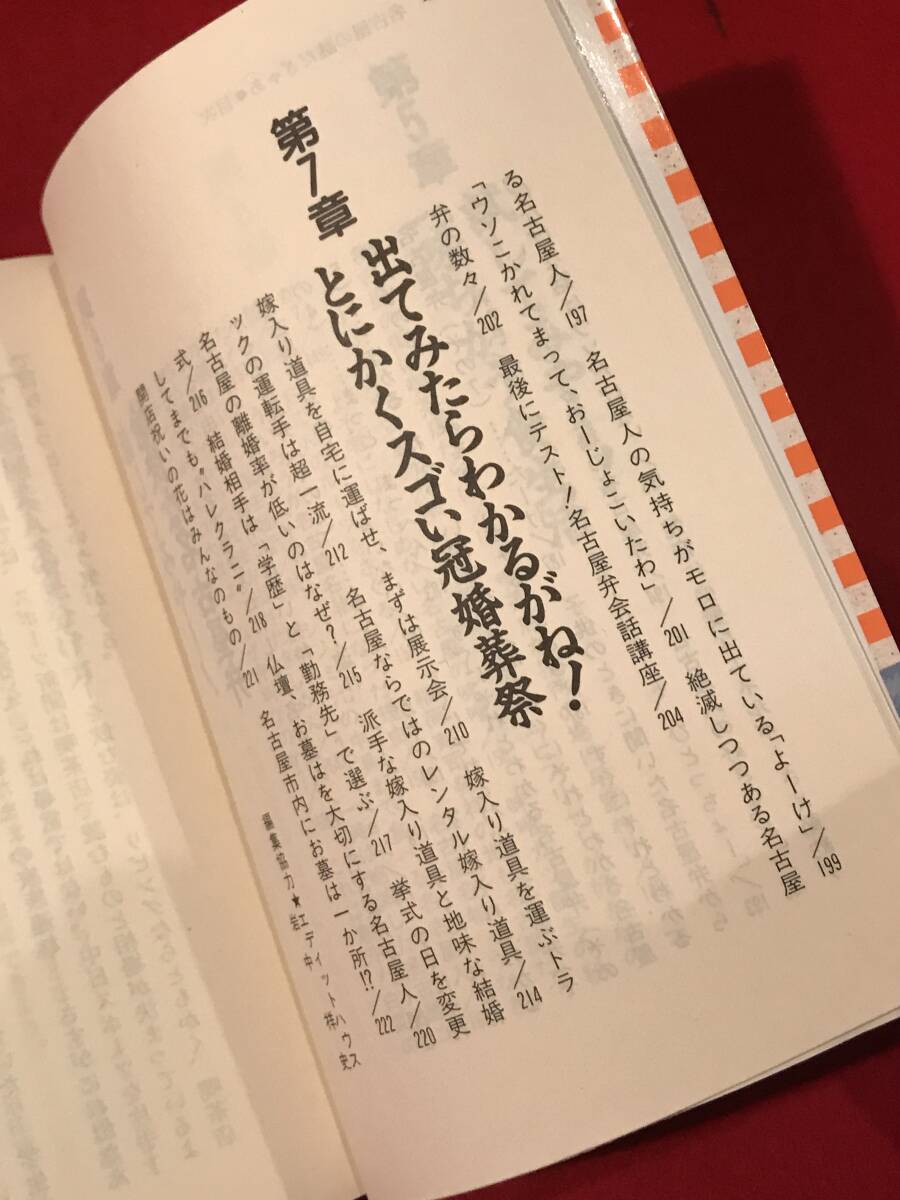 る名古屋人/197　名古屋人の気持ちがモロに出ている「よーけ」/199
「ウソこかれてまって、おーじょこいたわ」/201　絶滅しつつある名古屋
弁の数々/202　最後にテスト!名古屋弁会話講座/204
第7章
出てみたらわかるがね!
とにかくスゴい冠婚葬祭
嫁入り道具を自宅に運ばせ、まずは展示会/210　嫁入り道具を運ぶトラ
ックの運転手は超一流/212　名古屋ならではのレンタル嫁入り道具/214
名古屋の離婚率が低いのはなぜ?/215　派手な嫁入り道具と地味な結婚
式/216　結婚相手は「学歴」と「勤務先」で選ぶ/217　挙式の日を変更
してまでも〝ハレクラニ〟/218　仏壇、お墓はを大切にする名古屋人/220
開店祝いの花はみんなのもの/221　名古屋市内にお墓は一か所!?/222
編集協力★エディット・ハウス